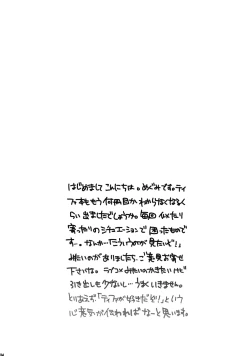 はじめまして こんにちは。めぐみです。ティ
ファ本ももう何冊目かわからなくなるく
らい出ましたでしょうか。毎回 似たり
寄ったりのシチュエーションで 困ったもので
す…。なんか…「こういうのが見たいぞ!」
みたいのがありましたら、ご意見お寄せ
下さいね。ラブ×2みたいのかきたいけど
引き出しも少ないし…うまくいきません。
とりあえず「ティファが好きだぞ!」という
心意気が伝わればなーと思います。